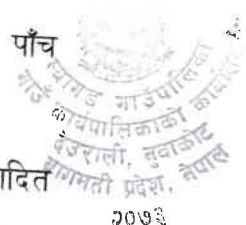 पाँच
गाउँपालिका
गाउँ कार्यपालिकाको कार्यालय
देउराली, नुवाकोट
बागमती प्रदेश, नेपाल
२०७३